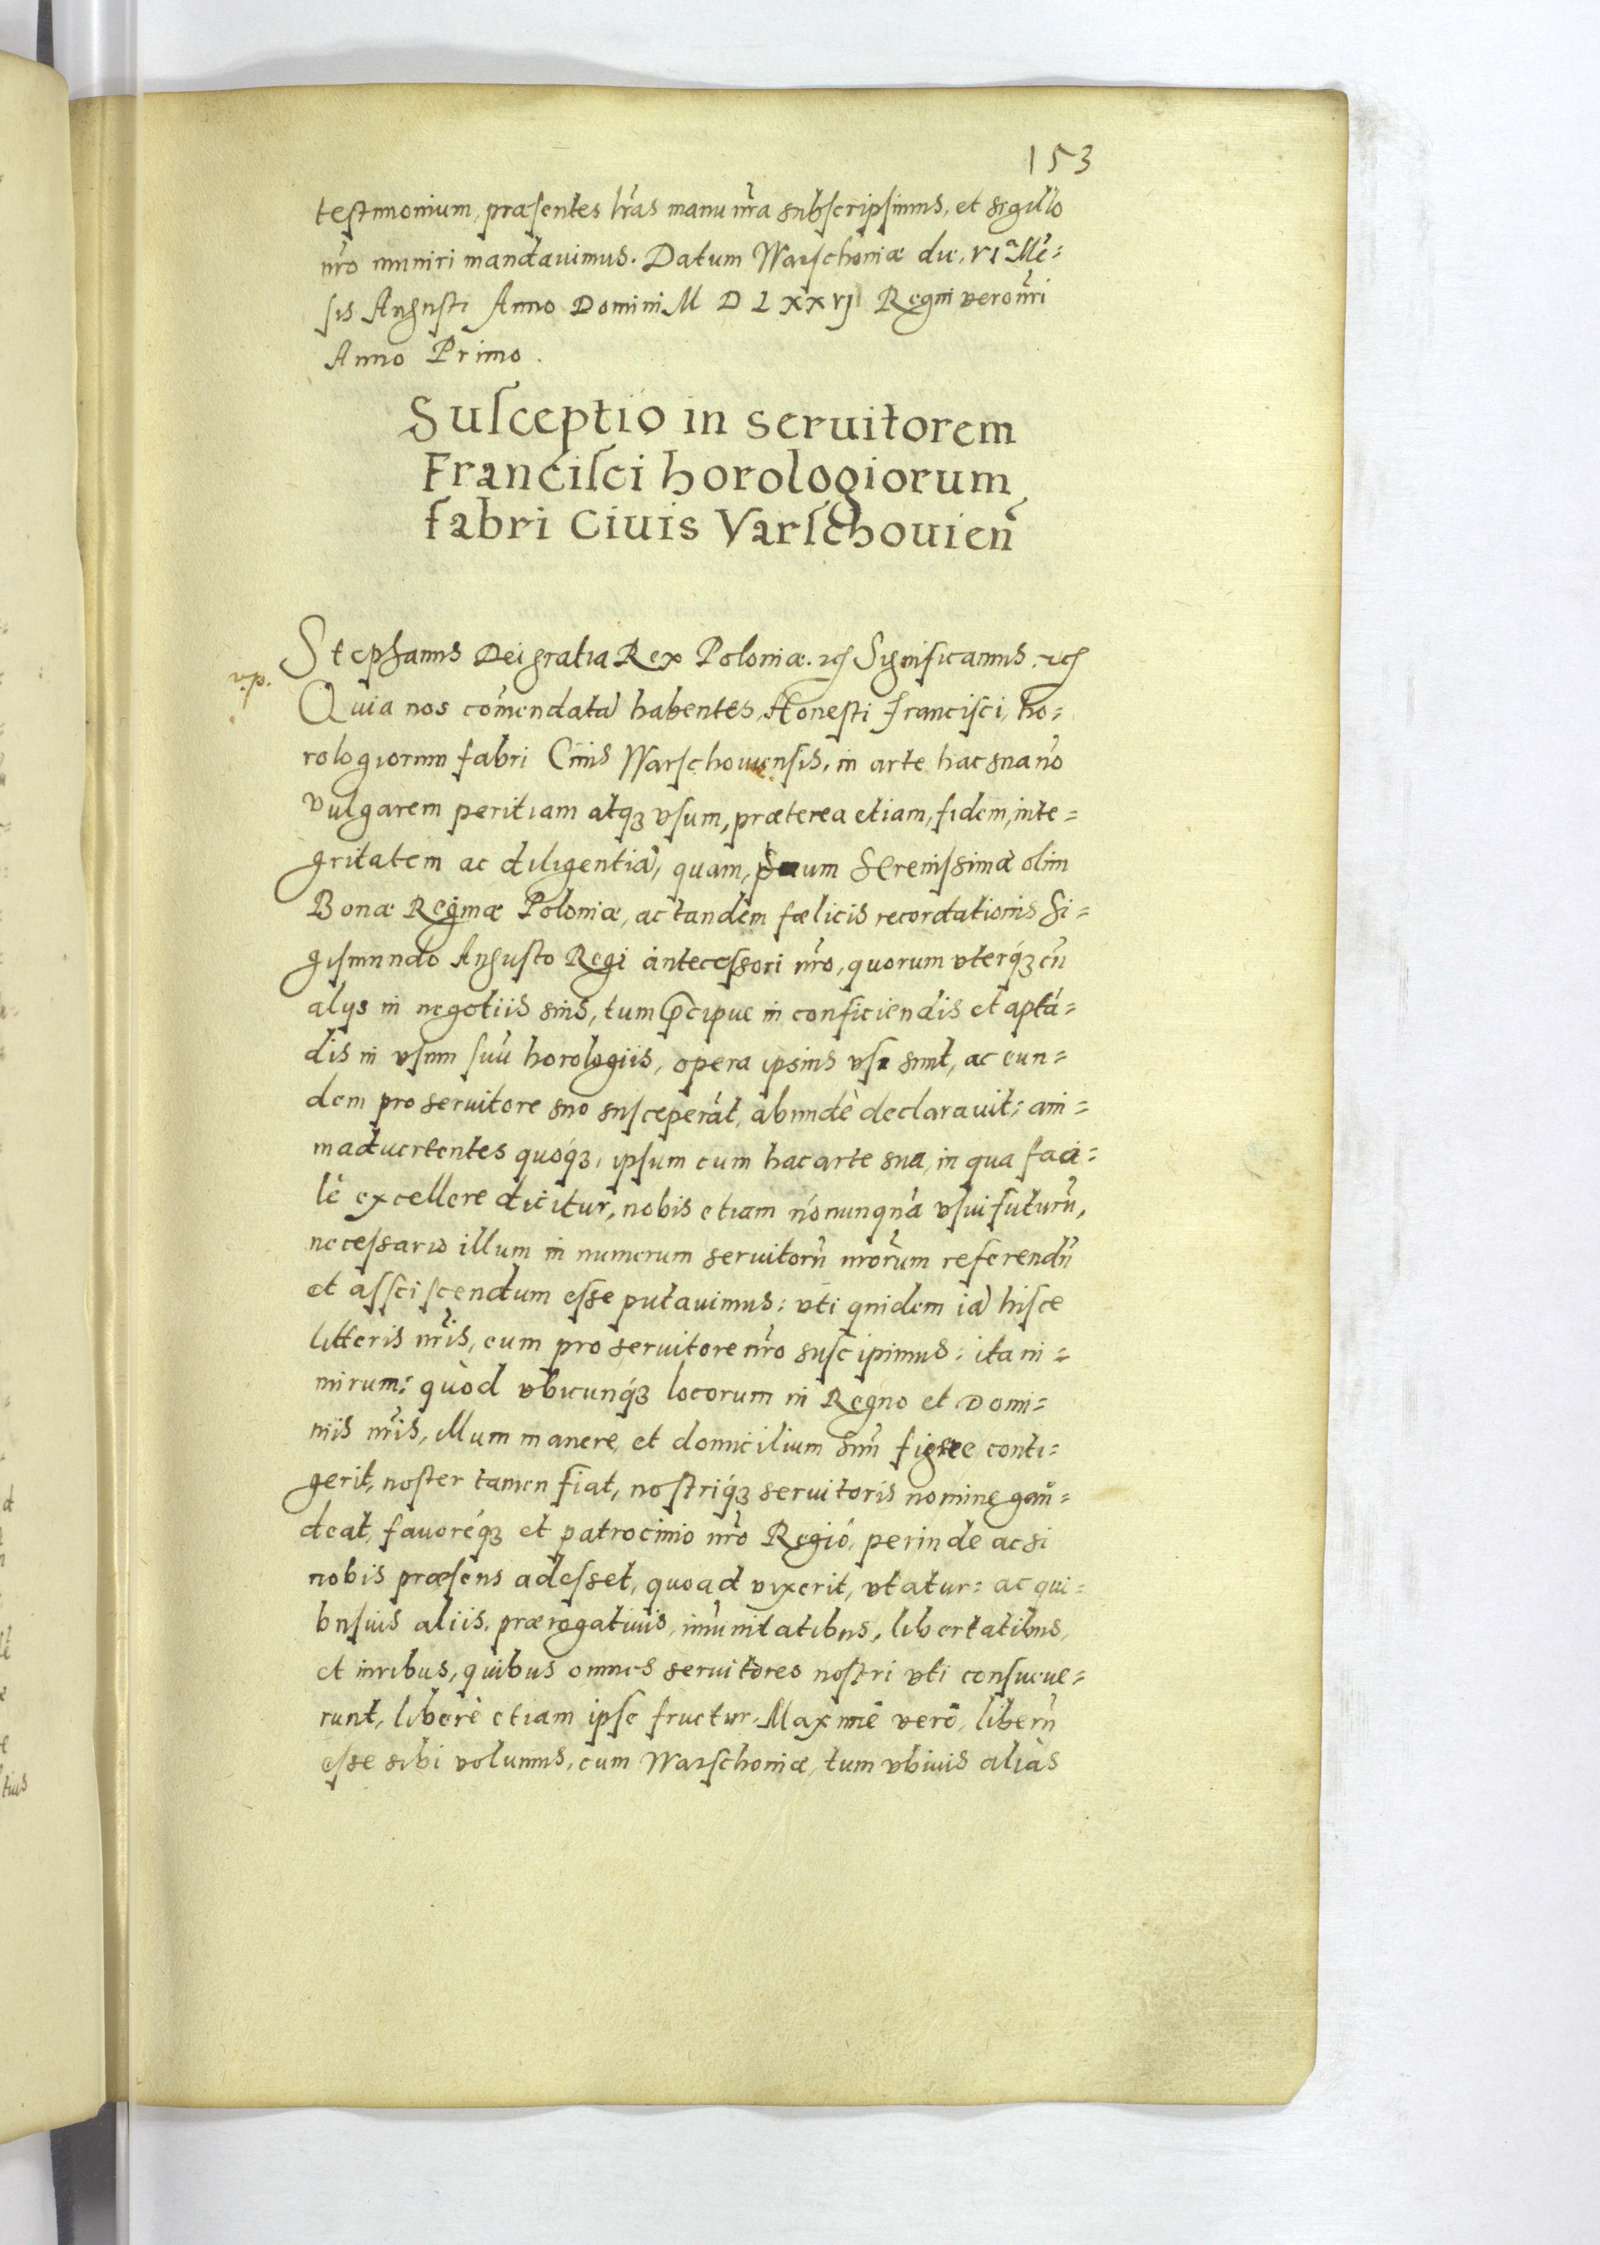 153
testimonium, præsentes lr̃as manu nr̃a subscripsimus, et sigillo
nr̃o muniri mandauimus. Datum Warschouiæ die, VIª Mẽ=
sis Augusti Anno Domini M D LXXVI Regni vero nr̃i
Anno Primo.
Susceptio in seruitorem
Francisci horologiorum
fabri Ciuis Varschouien̄
Stephanus Dei gratia Rex Poloniæ. etc Significamus. etc
v.p.
Quia nos com̃endatã habentes, Honesti Francisci, ho=
rologiorum fabri Ciuis Warschouiensis, in arte hac sua nõ
vulgarem peritiam atq3 vsum, præterea etiam, fidem, inte=
gritatem ac diligentiã, quam, Serenissimæ olim
Bonæ Reginæ Poloniæ, ac tandem fælicis recordationis Si=
gismundo Augusto Regi antecessori nr̃o, quorum vterq́3 cũ
alys in negotiis suis, tum p̃cipue in conficiendis et aptã=
dis in vsum suũ horologiis, opera ipsius vsi sunt, ac eun=
dem pro seruitore suo susceperãt, abundè declarauit: ani=
maduertentes quoq́3, ipsum cum hac arte sua, in qua faci=
lè excellere dicitur, nobis etiam nõnunquã vsui futurũ,
necessario illum in numerum seruitorũ nr̃orum referendũ
et assciscendum esse putauimus: vti quidem iã hisce
litteris nr̃is, eum pro seruitore nr̃o suscipimus: ita ni=
mirum: quòd vbicunq́3 locorum in Regno et Domi=
niis nr̃is, illum manere, et domicilium suũ figere conti=
gerit, noster tamen fiat, nostriq́3 seruitoris nomine gau=
deat, fauoréq3 et patrocinio nr̃o Regio, perinde acsi
nobis præsens adesset, quoad vixerit, vtatur: ac qui=
busuis aliis, prærogatiuis, im̃unitatibus, libertatibus,
et iuribus, quibus omnes seruitores nostri vti consueue=
runt, liberè etiam ipse fruetur. Maximè verò, liberũ
esse sibi volumus, cum Warschouiæ, tum vbiuis aliàs